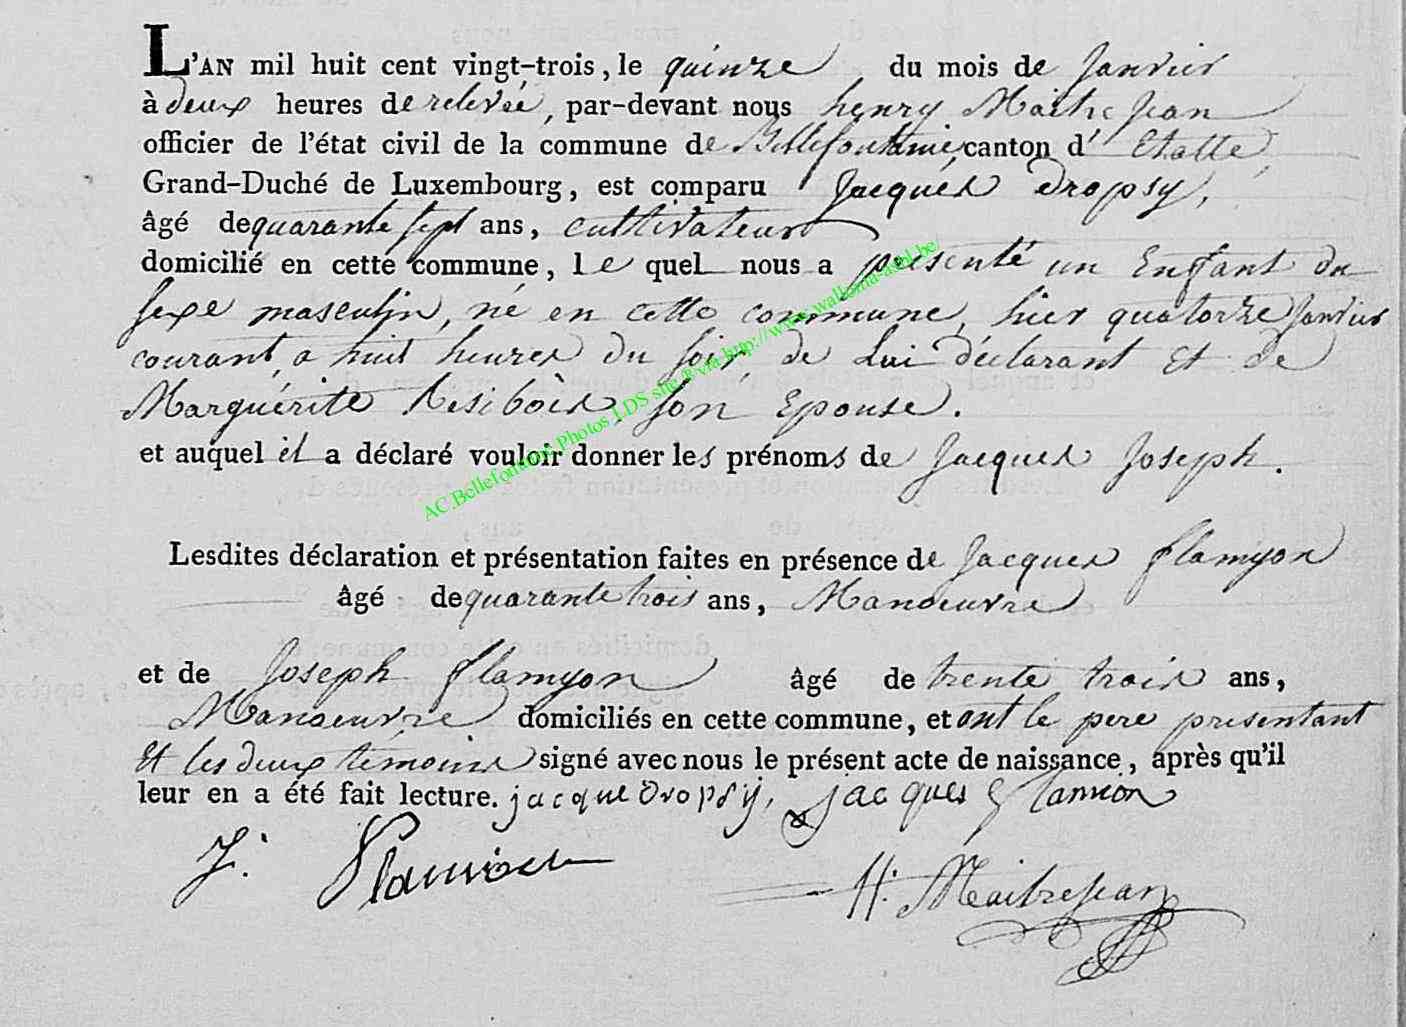 L'AN mil huit cent vingt-trois, le quinze du mois de Janvier
à deux heures de relevée, par-devant nous henry Maitrejean
officier de l'état civil de la commune de Bellefontaine, canton d'Etalle,
Grand-Duché de Luxembourg, est comparu Jacques Dropsy,
âgé de quarante sept ans, cultivateur
domicilié en cette commune, le quel nous a présenté un Enfant du
sexe masculin, né en cette commune, hier quatorze Janvier
courant, a huit heures du soir, de Lui déclarant Et de
Marguérite Resibois, son Epouse.
et auquel il a déclaré vouloir donner les prénoms de Jacques Joseph.
AC.Bellefontaine Photos LDS site * via http://www.wallonia-asbl.be/
Lesdites déclaration et présentation faites en présence de Jacques flamyon
âgé de quarante trois ans, Manoeuvre
et de Joseph flamyon âgé de trente trois ans,
Manoeuvre domiciliés en cette commune, et ont le pere présentant
Et les deux témoins signé avec nous le présent acte de naissance, après qu'il
leur en a été fait lecture. jacque dropsy, jacques flamion
J. flamion
H. Maitrejean